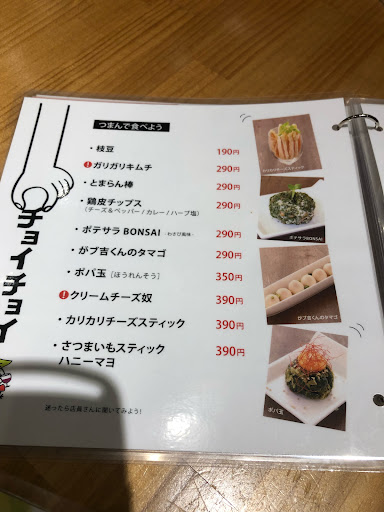 つまんで食べよう
・枝豆 190円
!ガリガリキムチ 290円
・とまらん棒 290円
・鶏皮チップス 290円
(チーズ&ペッパー / カレー / ハーブ塩)
・ポテサラBONSAI わさび風味 290円
・がブ吉くんのタマゴ 290円
・ポパ玉 [ほうれんそう] 350円
!クリームチーズ奴 390円
・カリカリチーズスティック 390円
・さつまいもスティック 390円
ハニーマヨ
迷ったら店員さんに聞いてみよう!
チョイチョイ
カリカリチーズスティック
ポテサラBONSAI
がブ吉くんのタマゴ
ポパ玉